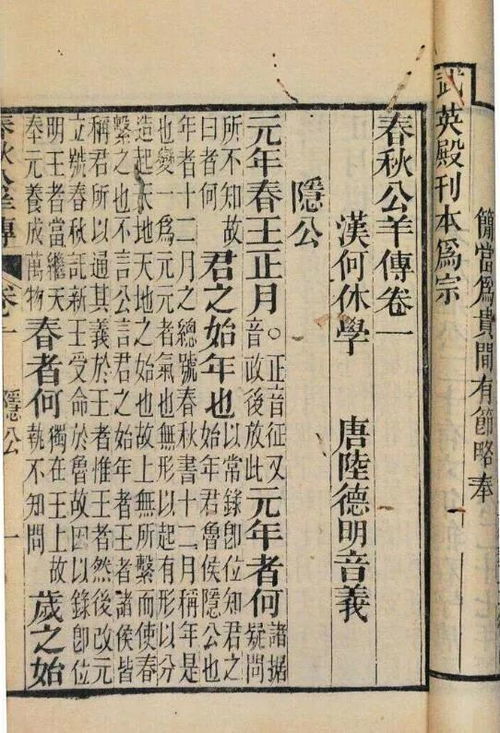 簡當爲貴閒有節略奉
武英殿刊本爲宗
春秋公羊傳卷一
漢何休學 唐陸德明音義
隱公
元年春王正月。正音征又音政後放此元年者何諸據疑問
所不知故曰者何君之始年也以常錄卽位知君之始年君魯侯隱公也
年者十二月之總號春秋書十二月稱年是
也變一爲元元者氣也無形以起有形以分
造起天地天地之始也故上無所繫而使春
繫之也不言公言君之始年者王者諸侯皆
稱君所以通其義於王者惟王者然後改元
立號春秋託新王受命於魯故因以錄卽位
明王者當繼天奉元養成萬物春者何獨在王上故執不知問歲之始
春秋公羊傳 卷一 隱公 一